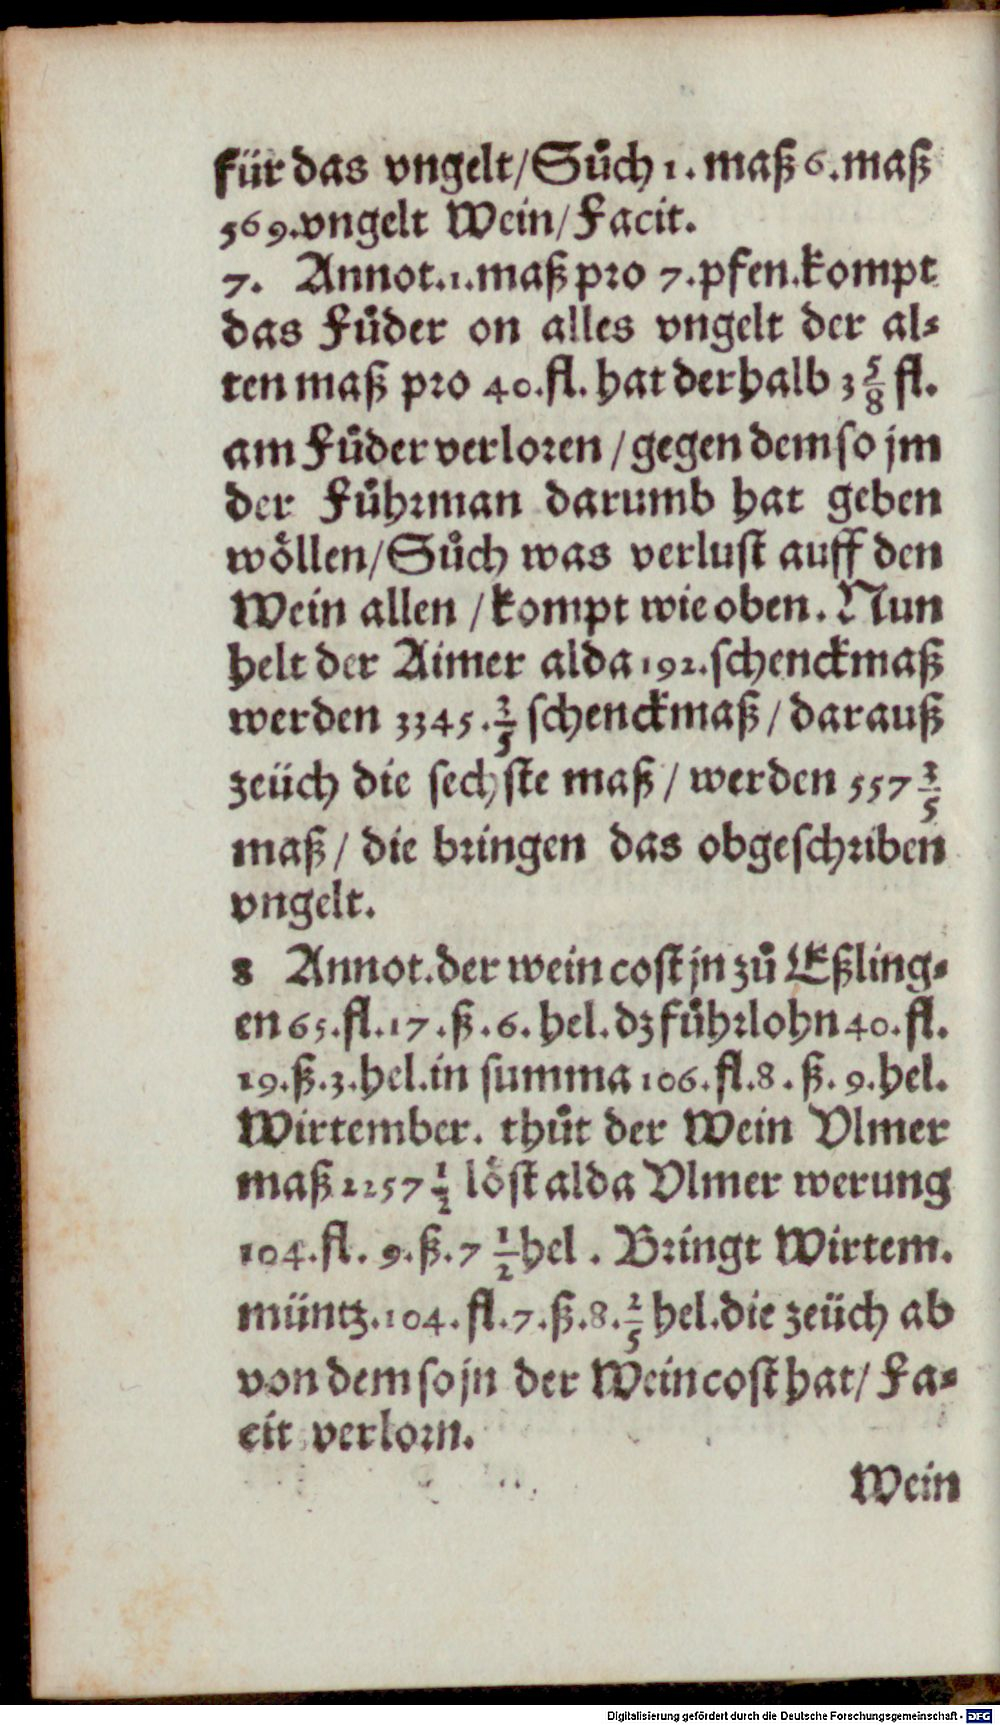 für das vngelt/Sůch 1. maß 6.maß
569.vngelt Wein/Facit.
7. Annot.1.maß pro 7.pfen.kompt
das Fůder on alles vngelt der al⸗
ten maß pro 40.fl. hat derhalb 3 5/8 fl.
am Fůder verloren / gegen dem so jm
der Fůhrman darumb hat geben
wöllen/Sůch was verlust auff den
Wein allen / kompt wie oben. Nun
helt der Aimer alda 192.schenckmaß
werden 3345. 3/5 schenckmaß / darauß
zeüch die sechste maß / werden 557 3/5
maß / die bringen das obgeschriben
vngelt.
8 Annot.der wein cost jn zů Eßling⸗
en 65.fl.17.ß.6. hel. dz fůhrlohn 40.fl.
19.ß.3.hel.in summa 106.fl.8. ß. 9.hel.
Wirtember. thůt der Wein Vlmer
maß 2257 1/2 löst alda Vlmer werung
104.fl. 9.ß.7 1/2 hel . Bringt Wirtem.
müntz.104.fl.7.ß.8. 2/5 hel.die zeüch ab
von dem so jn der Wein cost hat / Fa⸗
cit verlorn.
Wein
Digitalisierung gefördert durch die Deutsche Forschungsgemeinschaft - DFG